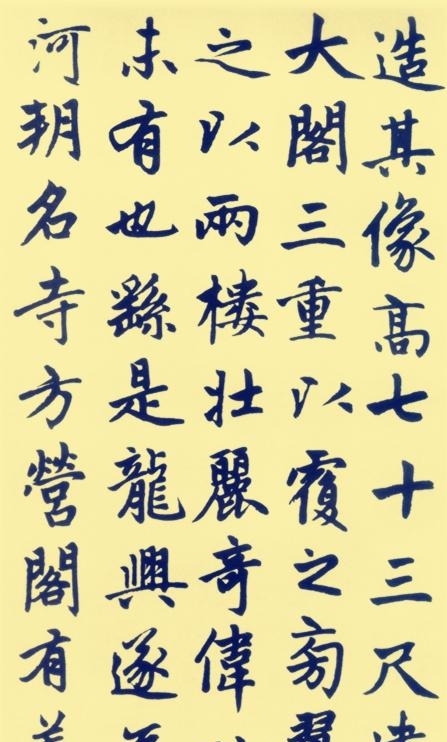 造其像高七十三尺建
大閣三重以覆之旁翼
之以兩樓壯麗奇偉
未有也繇是龍興遂
河朔名寺方營閣有